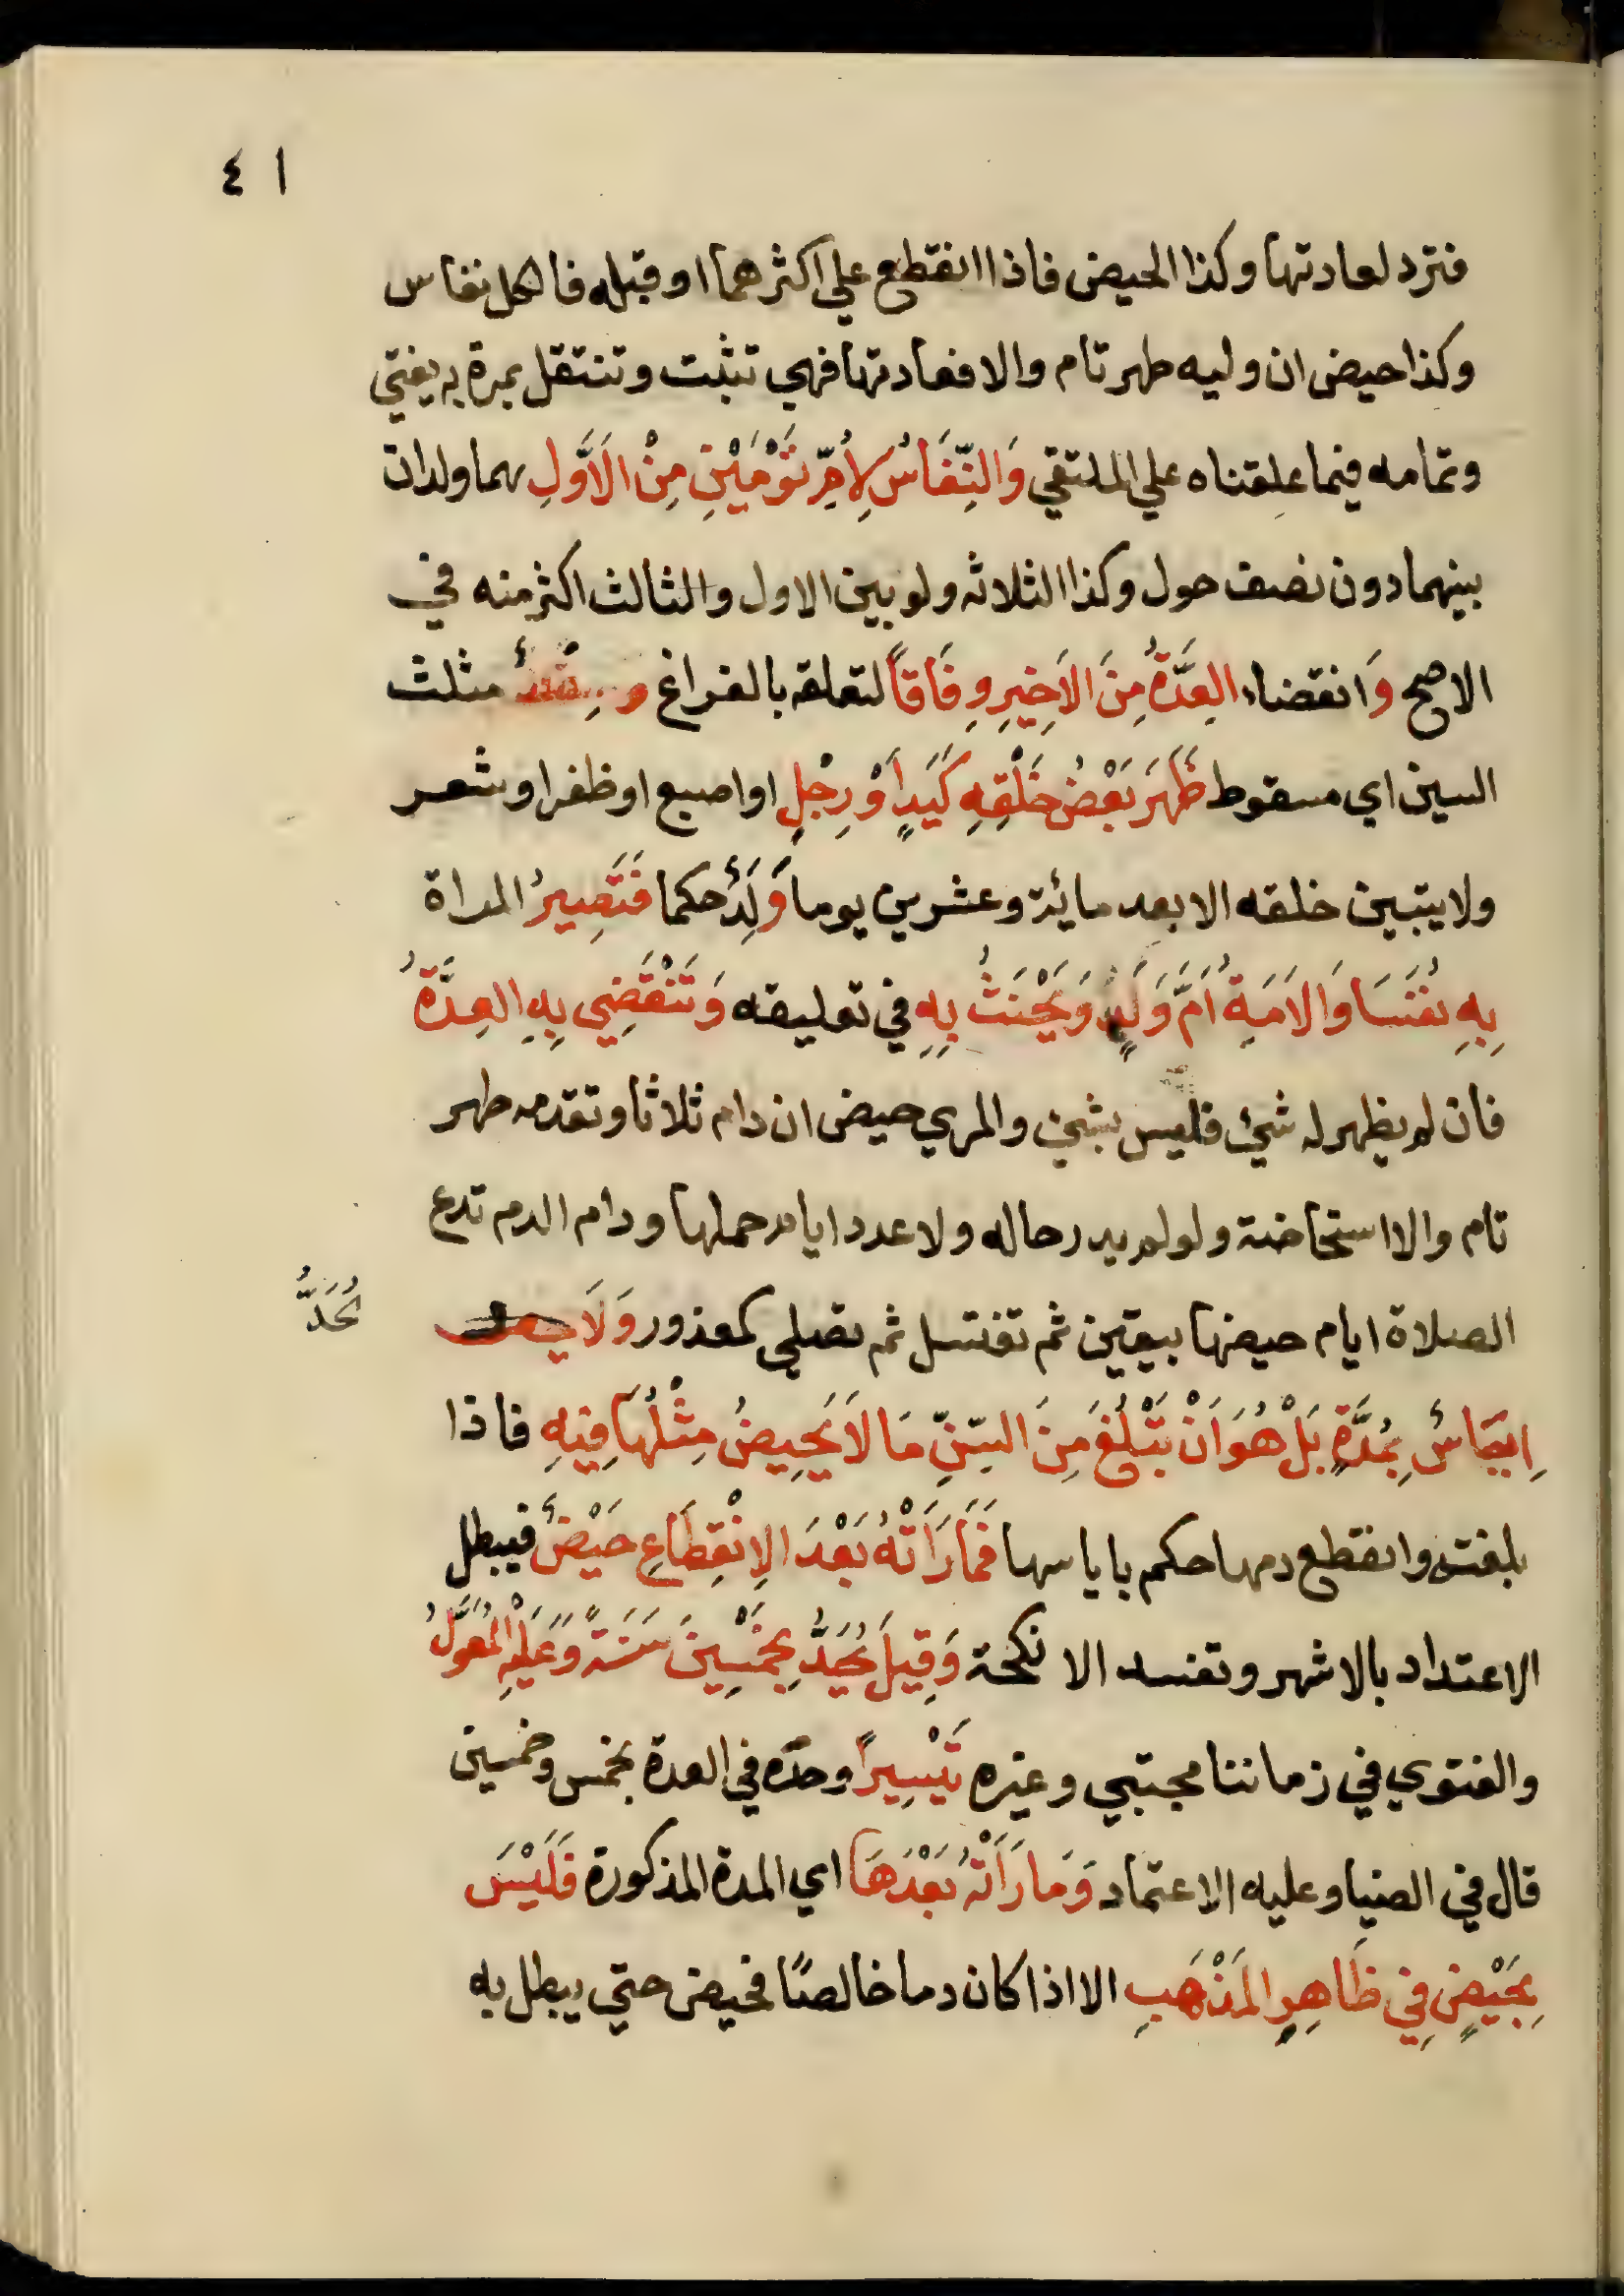 ٤١
فترد لعادتها وكذا الحيض فاذا انقطع علي اكثرهما او قبله فالكل نفاس
وكذا حيض ان وليه طهر تام والا فعادتها فهي تثبت وتنتقل بمرة به يفتي
وتمامه فيما علقناه علي الملتقي وَالنِّفَاسُ لِأُمِّ تَوْمَيْنِ مِنْ الَاَوَّلِ هما ولدان
بينهما دون نصف حول وكذا الثلاثه ولو بين الاول والثالث اكثر منه في
الاصح وَانقضاء العِدَّةُ مِنَ الاَخِيرِ وِفَاقاً لتعلقه بالفراغ وسِقْطٌ مثلث
السين اي مسقوط ظَهَرَ بَعْضُ خَلْقِهِ كَيَدٍ اَوْ رِجْلٍ او اصبع او ظفر او شعر
ولا يتبين خلقه الا بعد مائة وعشرين يوما وَلَدٌ حكما فَتَصِيرُ المراة
بِهِ نُفَسَا وَالاَمَةِ اُمَّ وَلَدٍ وَيَحْنَثُ بِهِ في تعليقه وَتَنْقَضِي بِهِ العِدَّةُ
فان لم يظهر له شئ فليس بشئ والمري حيض ان دام ثلاثا وتقدمه طهر
تام والا استحاضة ولو لم يدر حاله ولا عدد ايام حملها ودام الدم تدع
الصلاة ايام حيضها بيقين ثم تغتسل ثم تصلي كمعذور وَلَا
يُحَدُّ
اِيَاسٌ بِمُدَّةٍ بَلْ هُوَ اَنْ تَبْلُغَ مِنَ السِّنِّ مَا لاَ يَحِيضُ مِثْلُهَا فِيهِ فاذا
بلغته وانقطع دمها حكم باياسها فَمَا رَاَتْهُ بَعْدَ الاِنْقِطَاعِ حَيْضٌ فيبطل
الاعتداد بالاشهر وتفسد الانكحة وَقِيلَ يُحَدُّ بِخَمْسِينَ سَنَةً وَعَلَيْهِ المُعَوَّلُ
والفتوي في زماننا مجتبي وغيره تَيْسِيراً وحدّه في العدة بخمس وخمسين
قال في الضيا وعليه الاعتماد وَمَا رَاَتْهُ بَعْدَهَا اي المدة المذكورة فَلَيْسَ
بِحَيْضٍ فِي ظَاهِرِ المَذْهَبِ الا اذا كان دما خالصًا فحيض حتي يبطل به